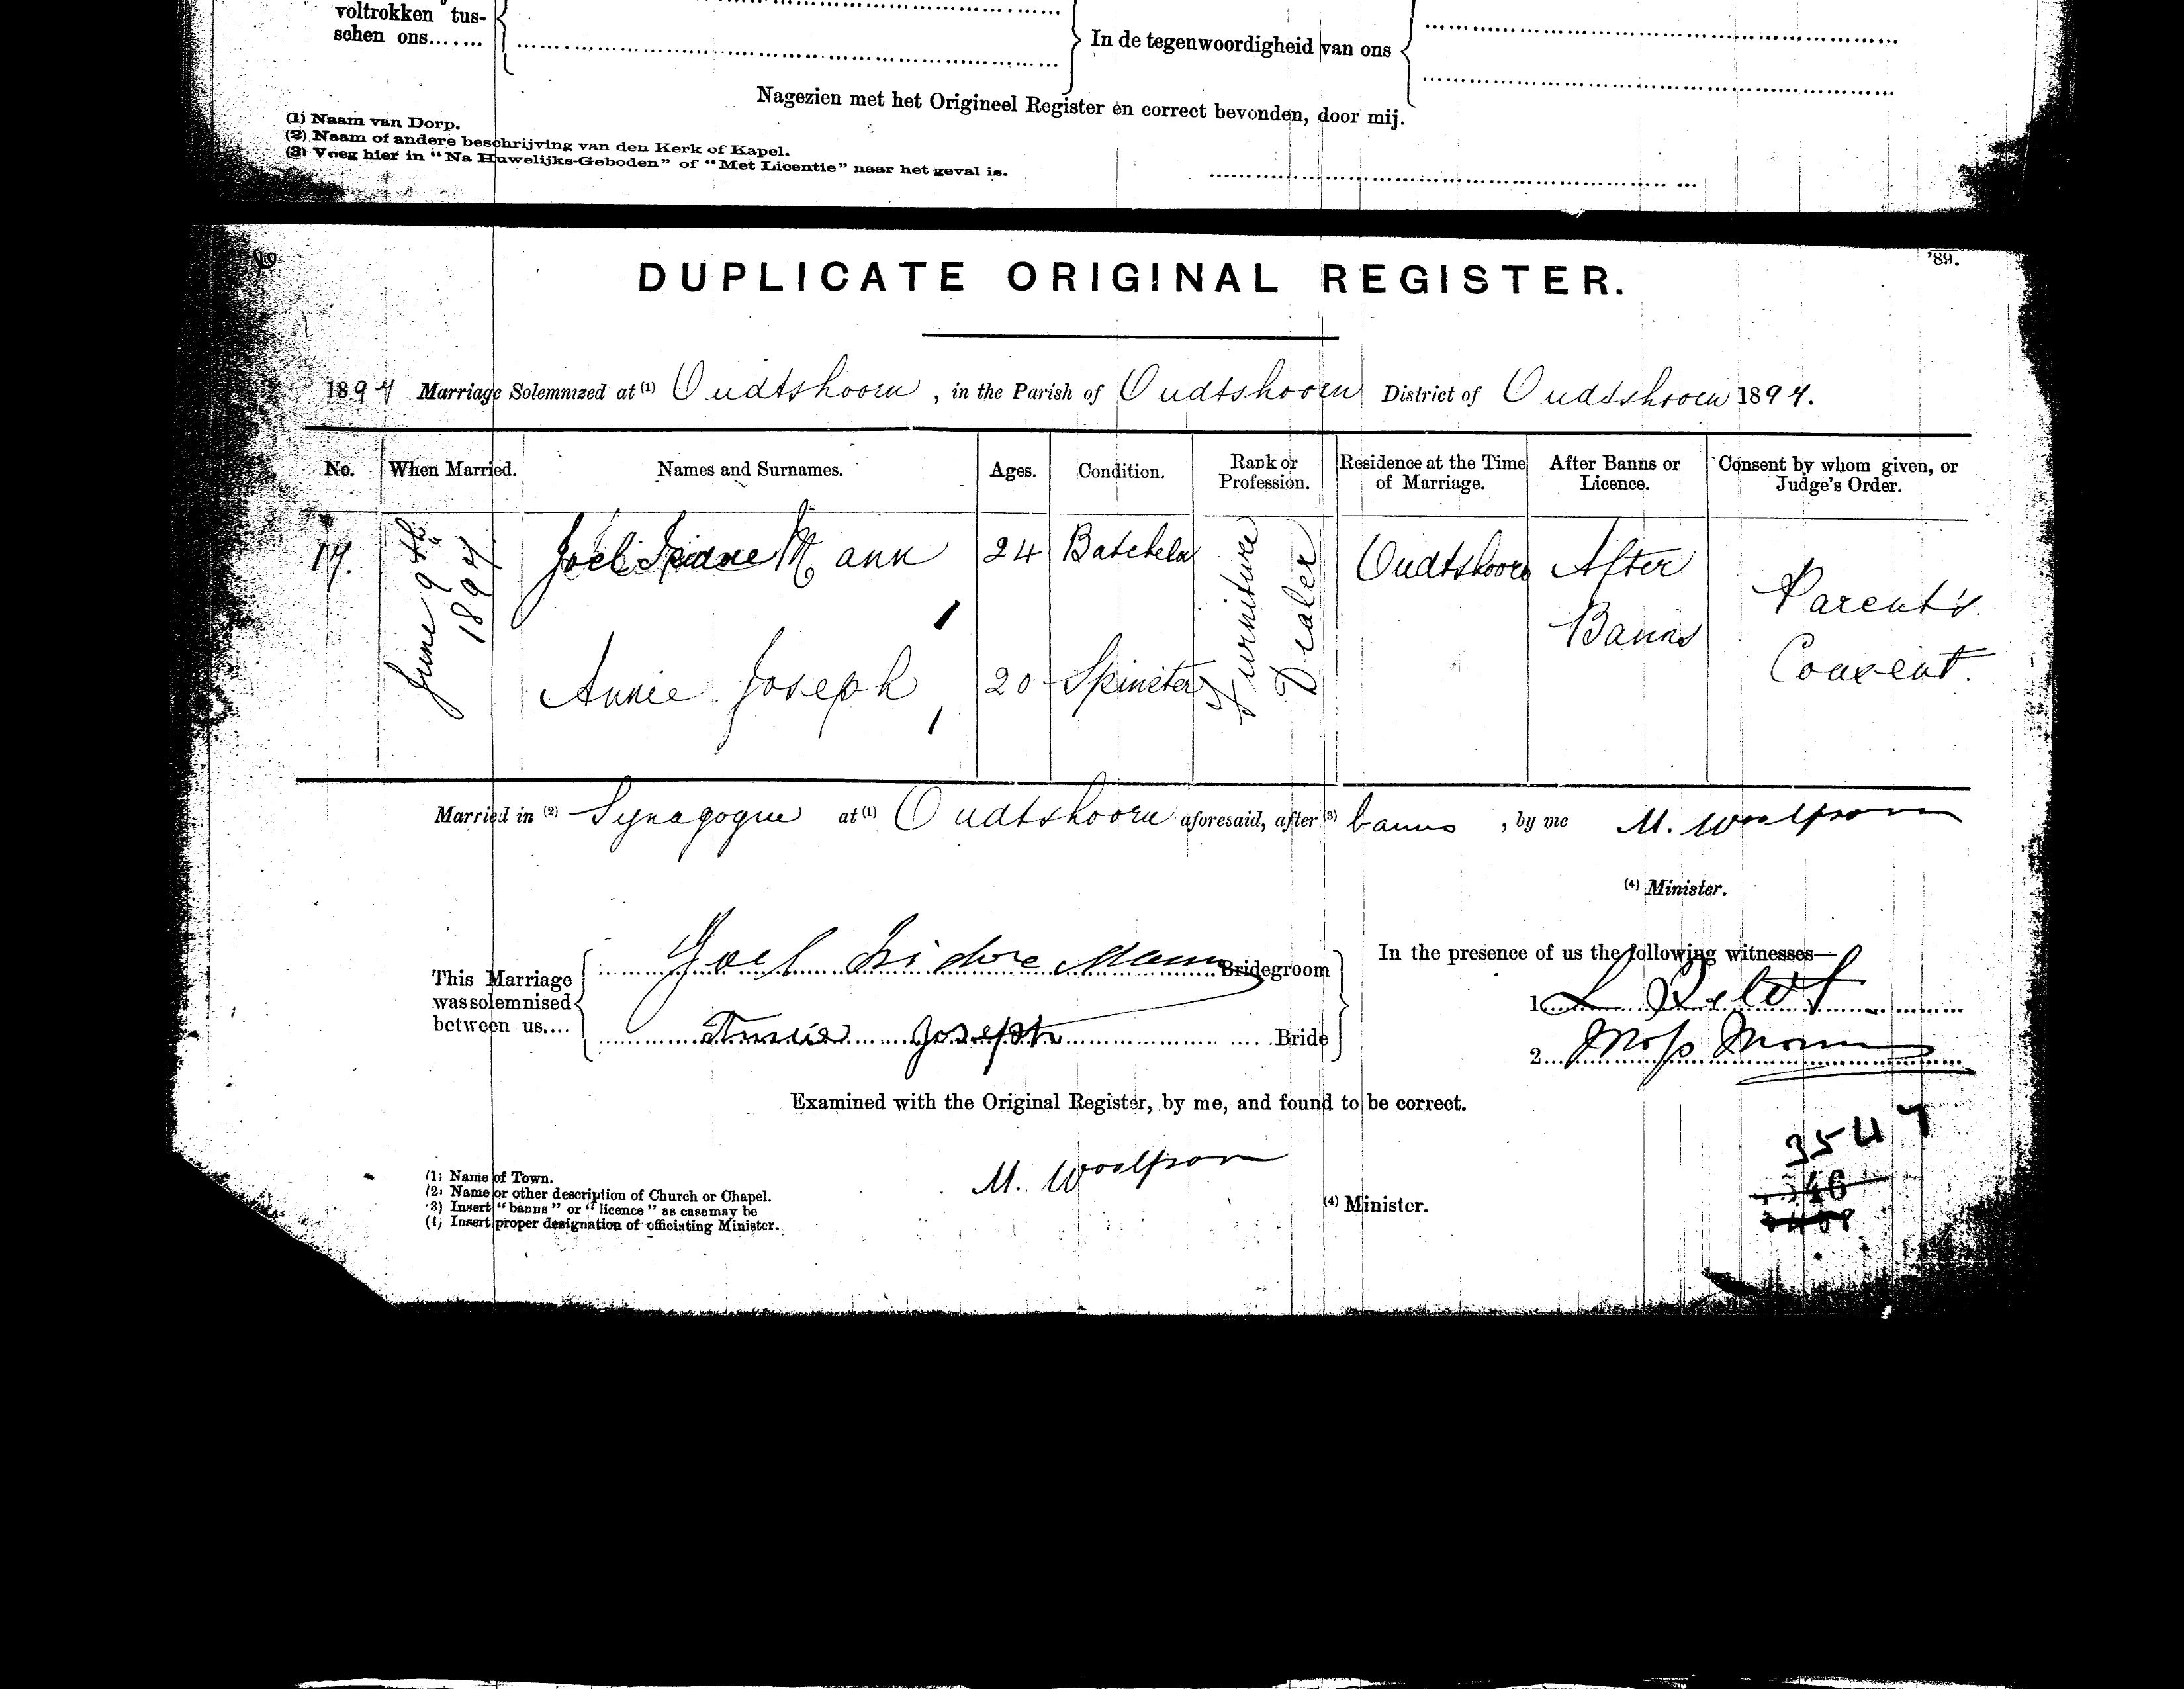 voltrokken tus-
schen ons.......
In de tegenwoordigheid van ons
Nagezien met het Origineel Register en correct bevonden, door mij.
(1) Naam van Dorp.
(2) Naam of andere beschrijving van den Kerk of Kapel.
(3) Voeg hier in "Na Huwelijks-Geboden" of "Met Licentie" naar het geval is.
'89.
DUPLICATE ORIGINAL REGISTER.
1897 Marriage Solemnized at (1) Oudtshoorn, in the Parish of Oudtshoorn District of Oudtshoorn 1897.
No. When Married. Names and Surnames. Ages. Condition. Rank or Profession. Residence at the Time of Marriage. After Banns or Licence. Consent by whom given, or Judge's Order.
17. June 9th 1897 Joel Mann 24 Batchelor Furniture Dealer Oudtshoorn After Banns Parent's Consent.
Annie Joseph 20 Spinster
Married in (2) Synagogue at (1) Oudtshoorn aforesaid, after (3) banns, by me M. Woolfson
(4) Minister.
This Marriage was solemnised between us....
Joel Isidore Mann Bridegroom
Annie Joseph Bride
In the presence of us the following witnesses—
1 L
2 Moss Mann
Examined with the Original Register, by me, and found to be correct.
M. Woolfson
(4) Minister.
3547
46
(1) Name of Town.
(2) Name or other description of Church or Chapel.
(3) Insert "banns" or "licence" as case may be
(4) Insert proper designation of officiating Minister.